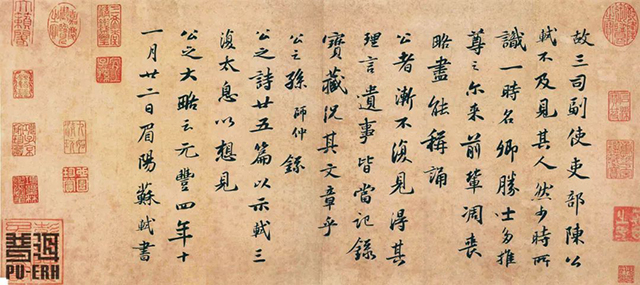 故三司副使吏部陳公
軾不及見其人然少時所
識一時名卿勝士多推
尊之尔来前輩凋喪
略盡能稱誦
公者漸不復見得其
理言遺事皆當記錄
寶藏況其文章乎
公之孫師仲錄
公之詩廿五篇以示軾三
復太息以想見
公之大略云元豐四年十
一月廿二日眉陽蘇軾書
普洱
PU-ERH